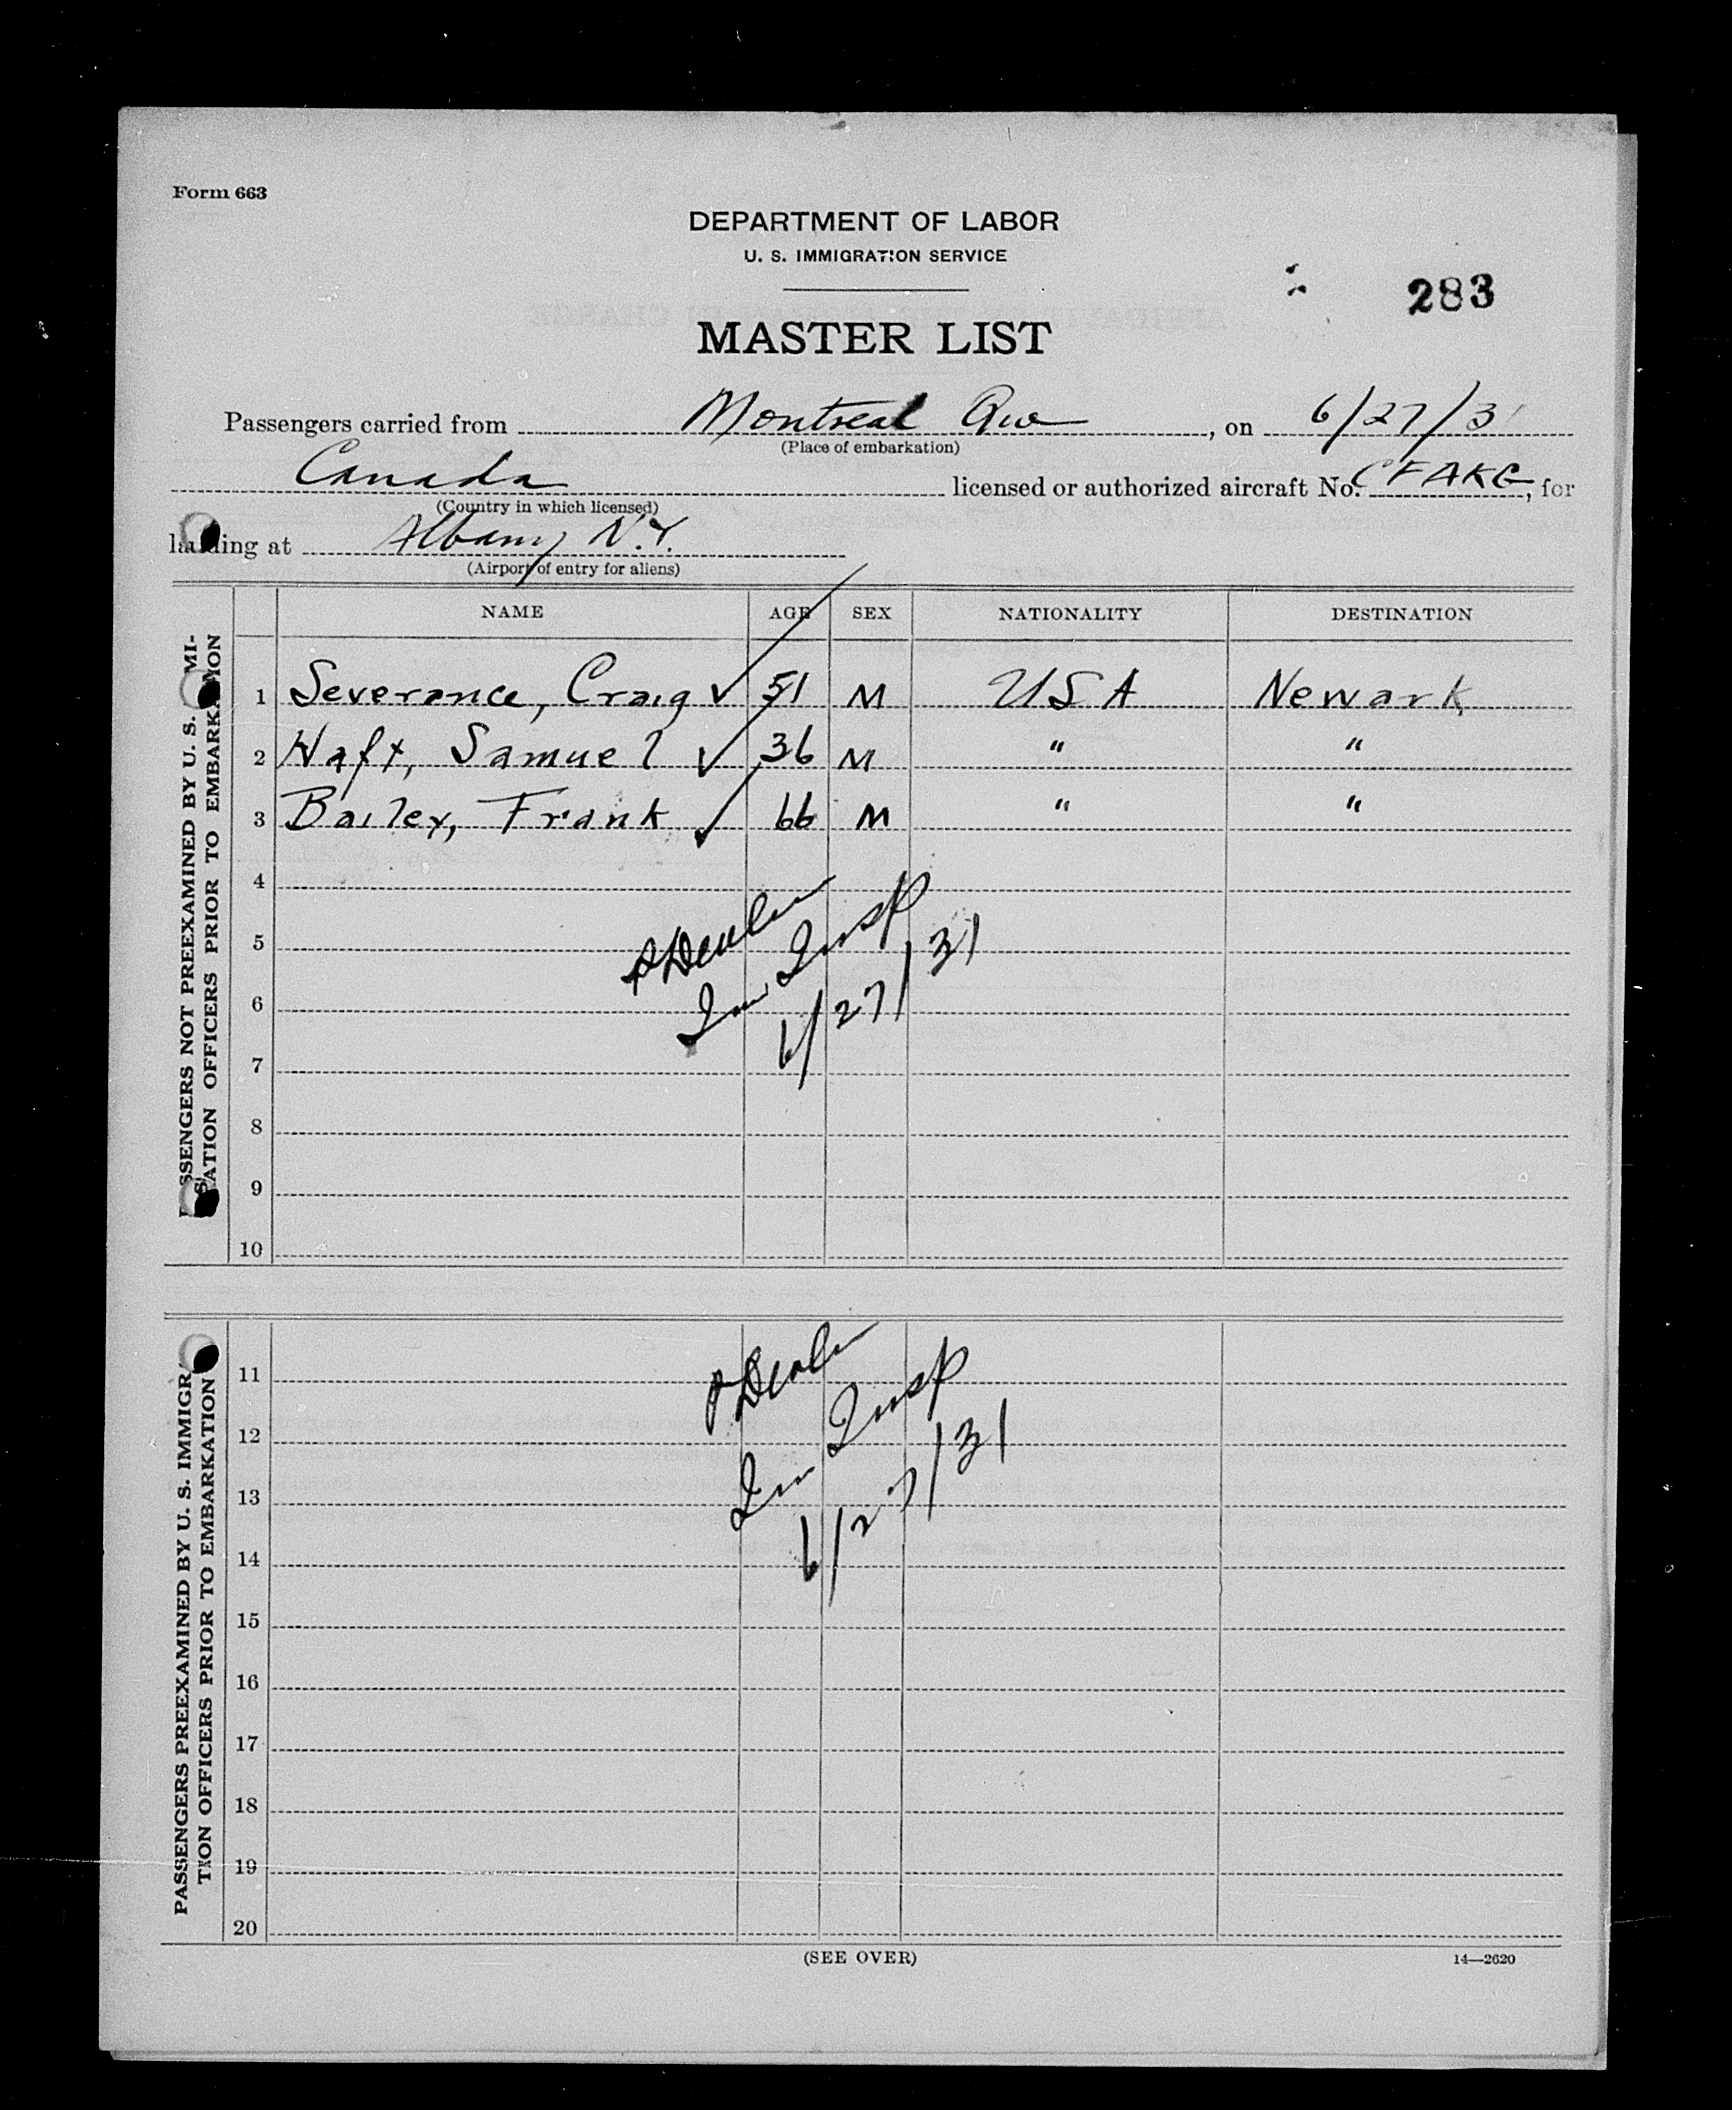 Form 663
DEPARTMENT OF LABOR
U. S. IMMIGRATION SERVICE
283
MASTER LIST
Passengers carried from Montreal Que, on 6/27/31
(Place of embarkation)
Canada licensed or authorized aircraft No. CFAKG, for
(Country in which licensed)
landing at Albany N.Y.
(Airport of entry for aliens)
NAME AGE SEX NATIONALITY DESTINATION
PASSENGERS NOT PREEXAMINED BY U. S. IMMI-
GRATION OFFICERS PRIOR TO EMBARKATION
1 Severance, Craig ✓ 51 M USA Newark
2 Haft, Samuel ✓ 36 M " "
3 Bailey, Frank ✓ 66 M " "
4
5
Imm Insp
6
6/27/31
7
8
9
10
PASSENGERS PREEXAMINED BY U. S. IMMIGRA-
TION OFFICERS PRIOR TO EMBARKATION
11
12
Imm Insp
13
6/27/31
14
15
16
17
18
19
20
(SEE OVER) 14—2620